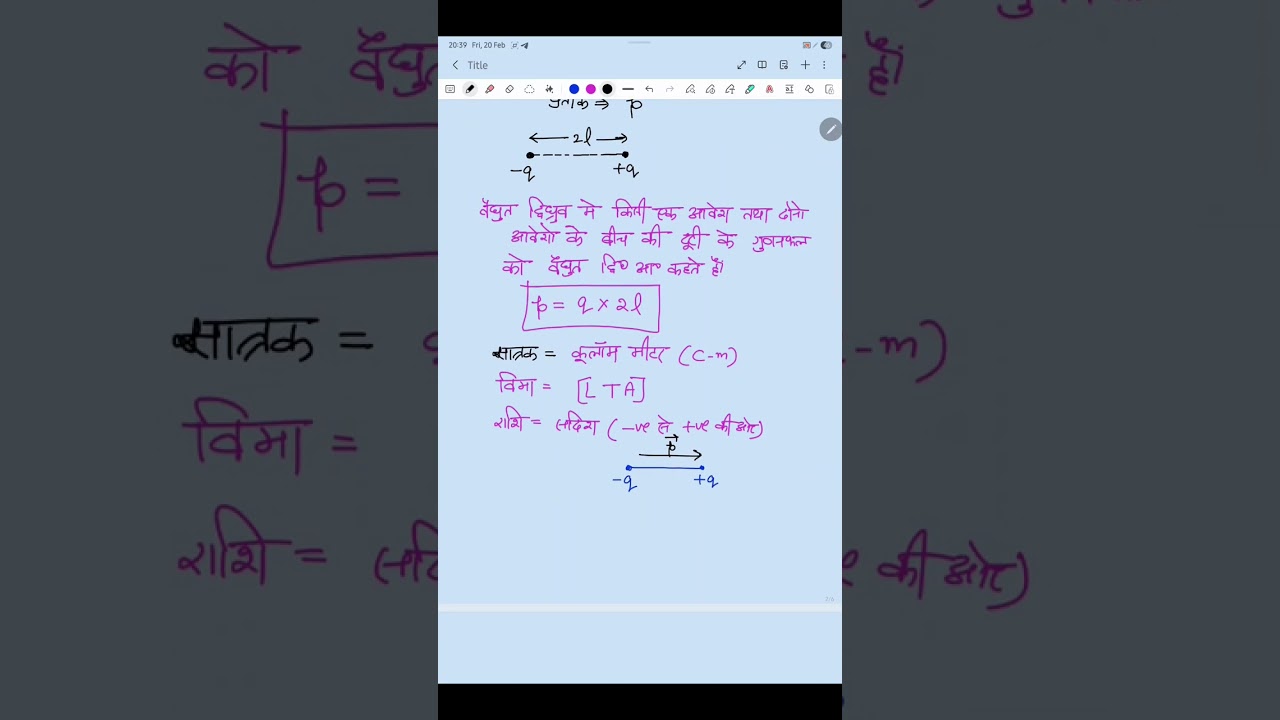 20:39 Fri, 20 Feb
Title
⇒ p
2l
-q +q
वैद्युत द्विध्रुव मे किसी एक आवेश तथा दोनो
आवेशो के बीच की दूरी के गुणनफल
को वैद्युत द्वि० आ० कहते है।
p = q × 2l
मात्रक = कूलॉम मीटर (C-m)
विमा = [L T A]
राशि = सदिश (-ve से +ve की ओर)
p
-q +q